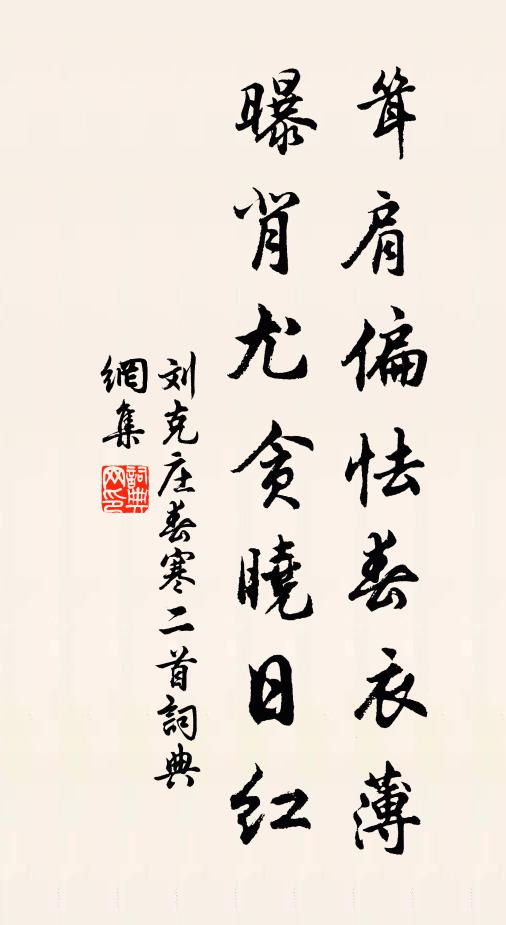 耸肩偏怯春衣薄
曝背尤贪曉日红
刘克庄春寒二首詞典
網集
詞典
网印